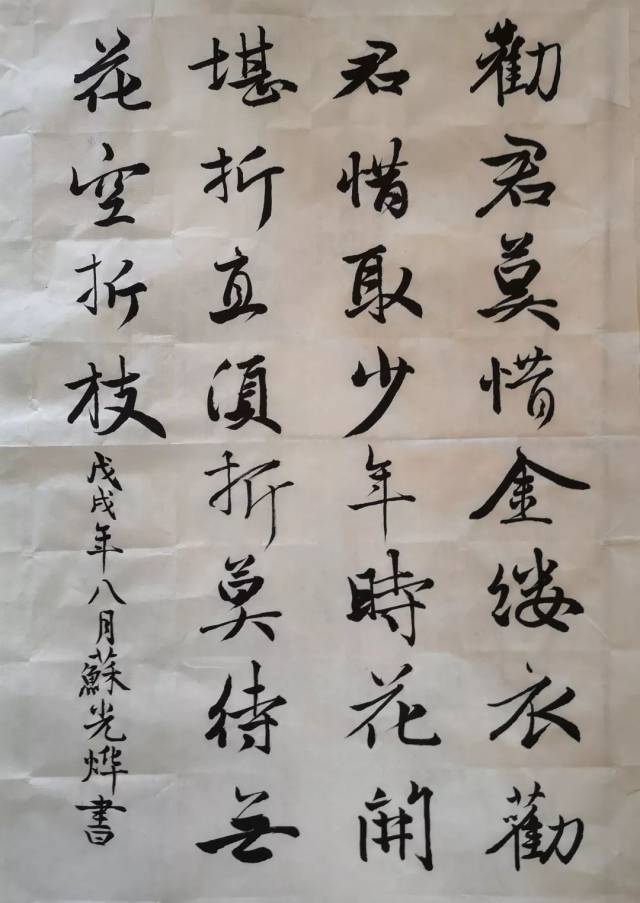 勸君莫惜金缕衣勸
君惜取少年時花開
堪折直須折莫待无
花空折枝
戊戌年八月蘇光烨書